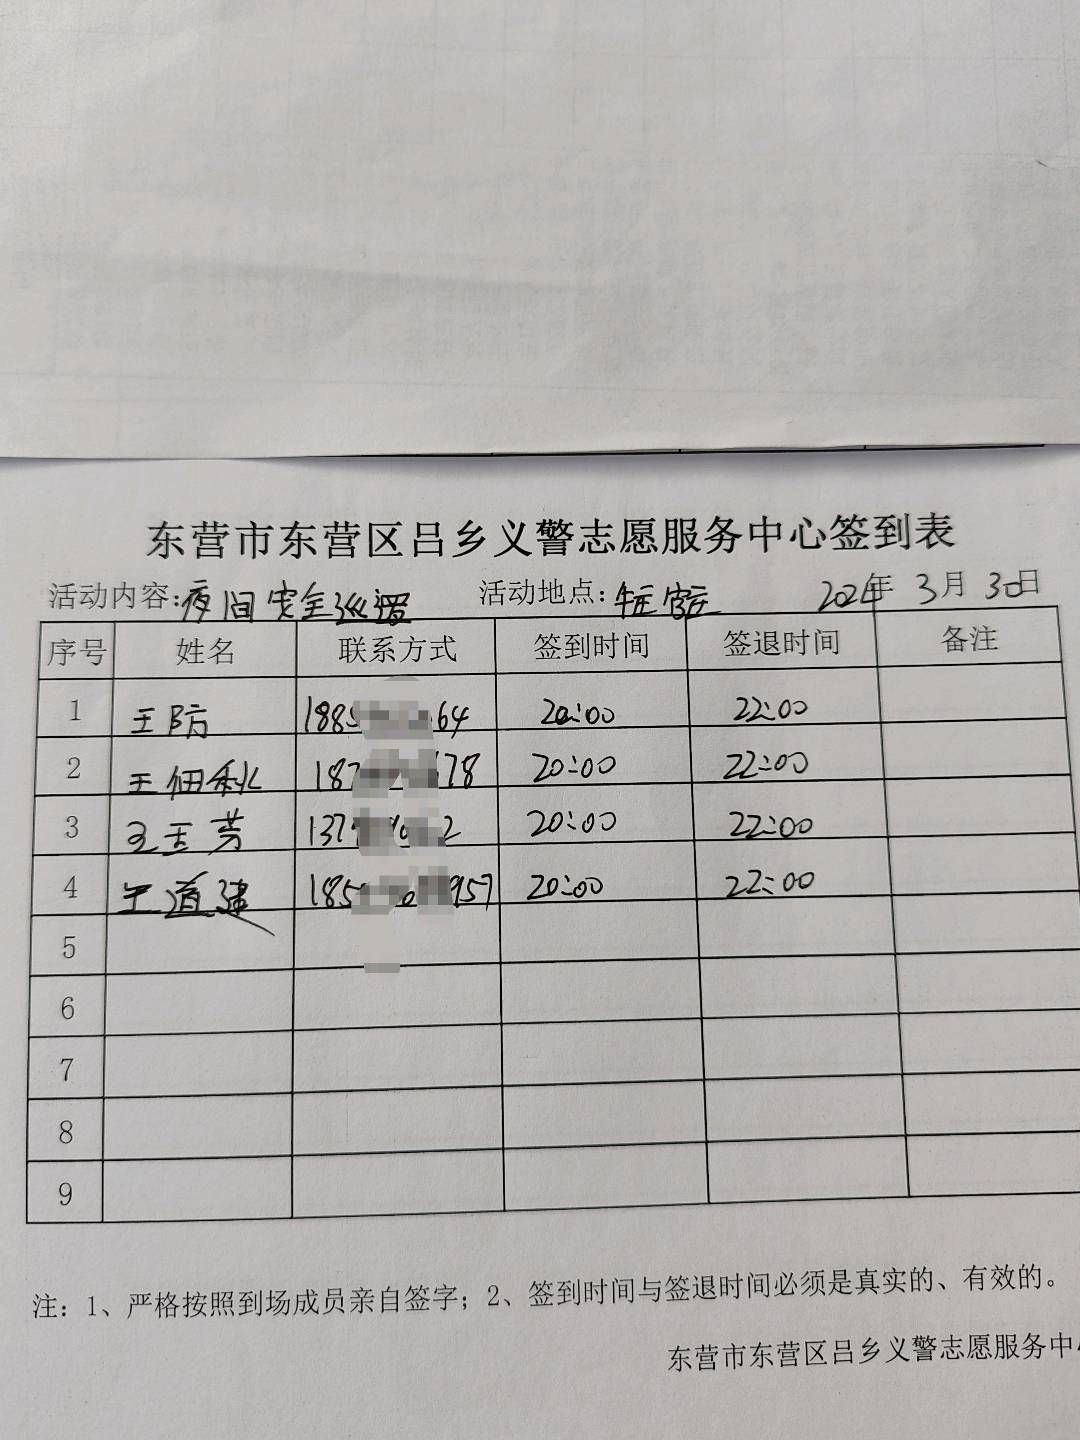 东营市东营区吕乡义警志愿服务中心签到表
活动内容:夜间安全巡逻 活动地点: 2024年 3月 30日
序号 姓名 联系方式 签到时间 签退时间 备注
1 王防 188 64 20:00 22:00
2 王佃秋 187 78 20:00 22:00
3 王玉芳 137 2 20:00 22:00
4 王道建 185 957 20:00 22:00
5
6
7
8
9
注: 1、严格按照到场成员亲自签字; 2、签到时间与签退时间必须是真实的、有效的。
东营市东营区吕乡义警志愿服务中